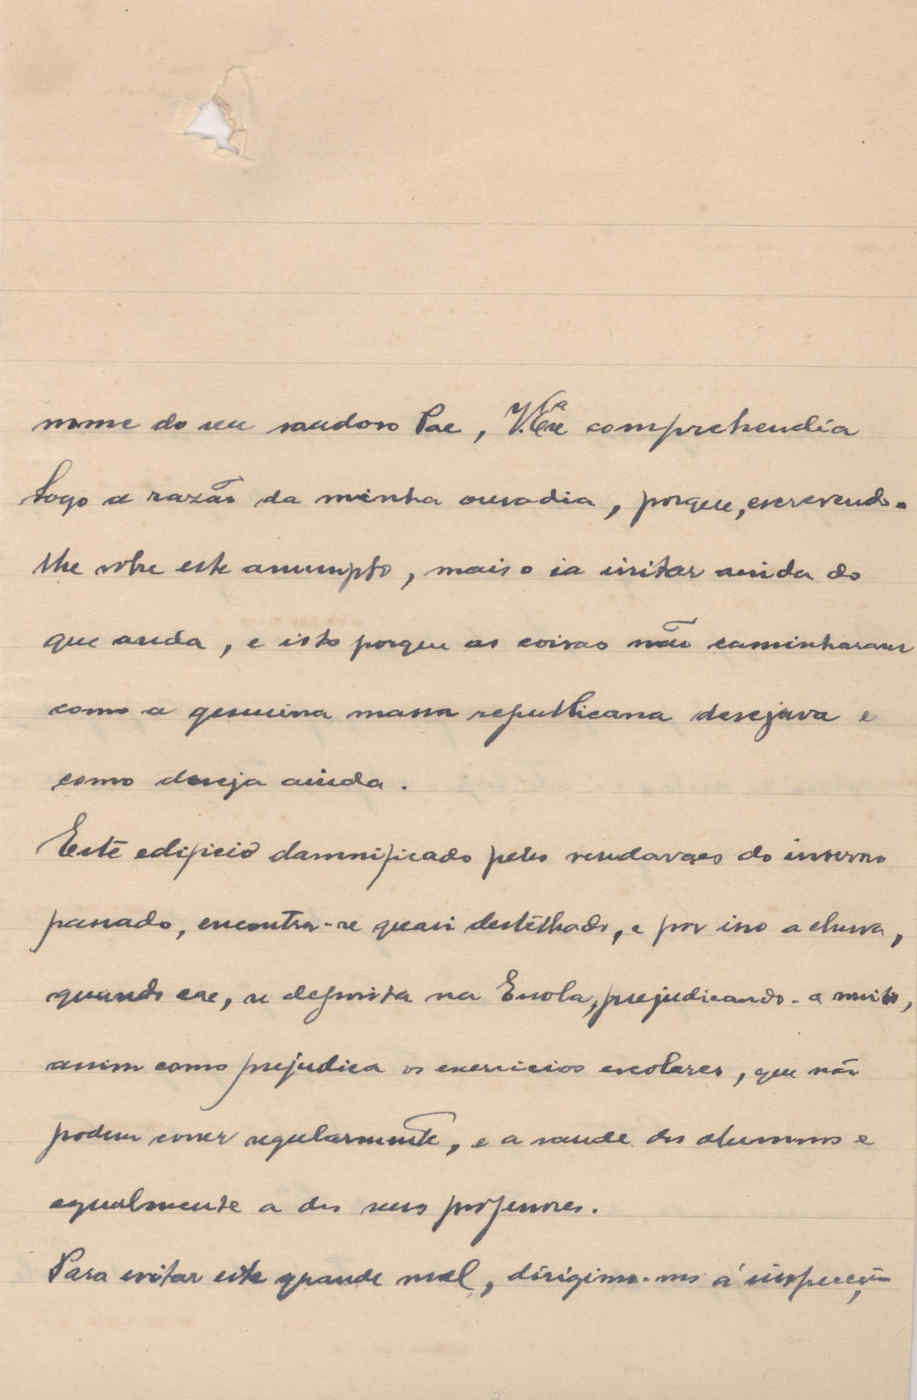 nome do seu saudoso Pae, V. Exª comprehendia
logo a razão da minha ousadia, porque, escrevendo-
lhe sobre este assumpto, mais o ia irritar ainda do
que anda, e isto porque as coisas não caminharam
como a genuina massa republicana desejava e
como deseja ainda.
Este edificio damnificado pelos vendavaes do inverno
passado, encontra-se quasi destelhado, e por isso a chuva,
quando cae, se deposita na Escola, prejudicando-a muito,
assim como prejudica os exercicios escolares, que não
podem correr regularmente, e a saude dos alumnos e
egualmente a dos seus professores.
Para evitar este grande mal, dirigimo-nos á inspecção